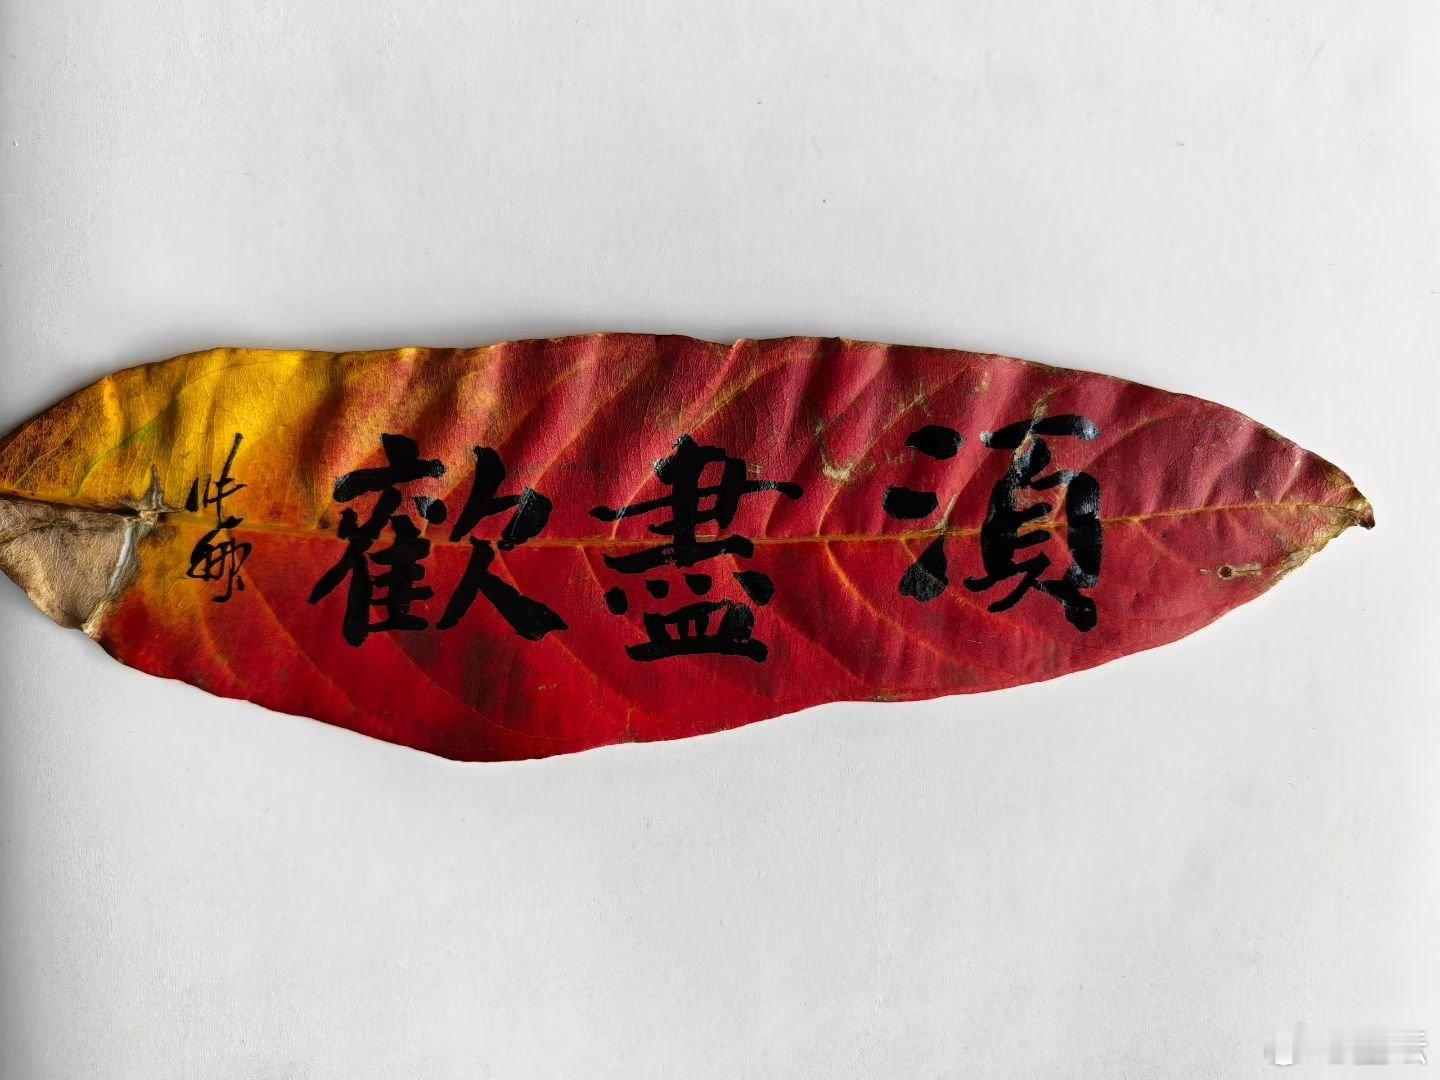 須盡歡